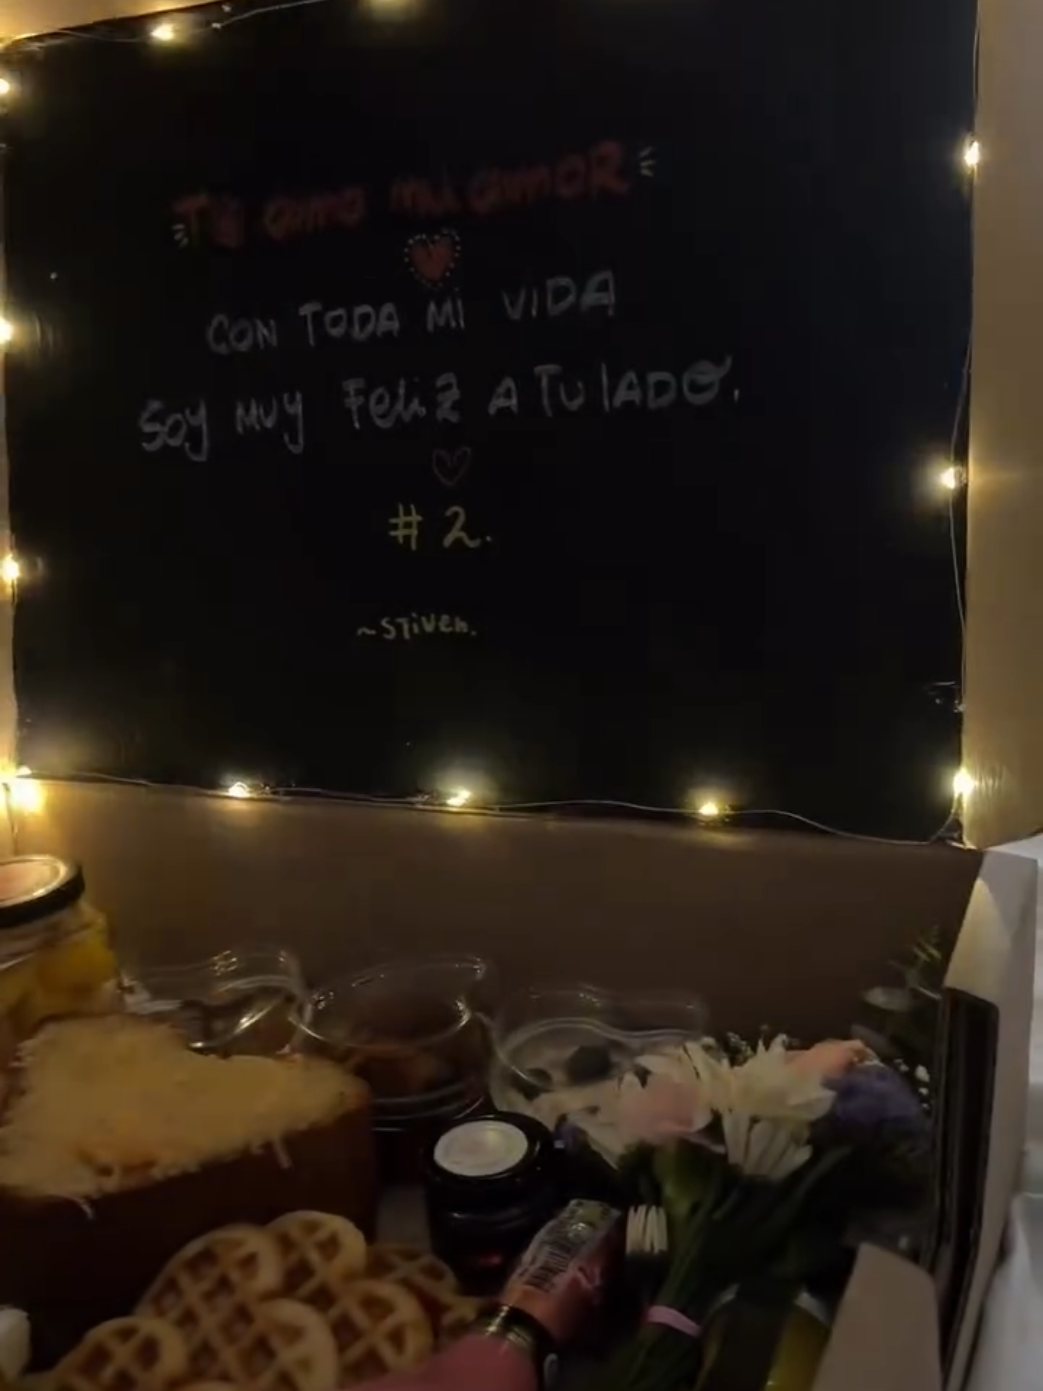 Te amo mi amor
CON TODA Mi ViDA
Soy MUY Feliz A Tu lADO.
# 2.
~STiven.